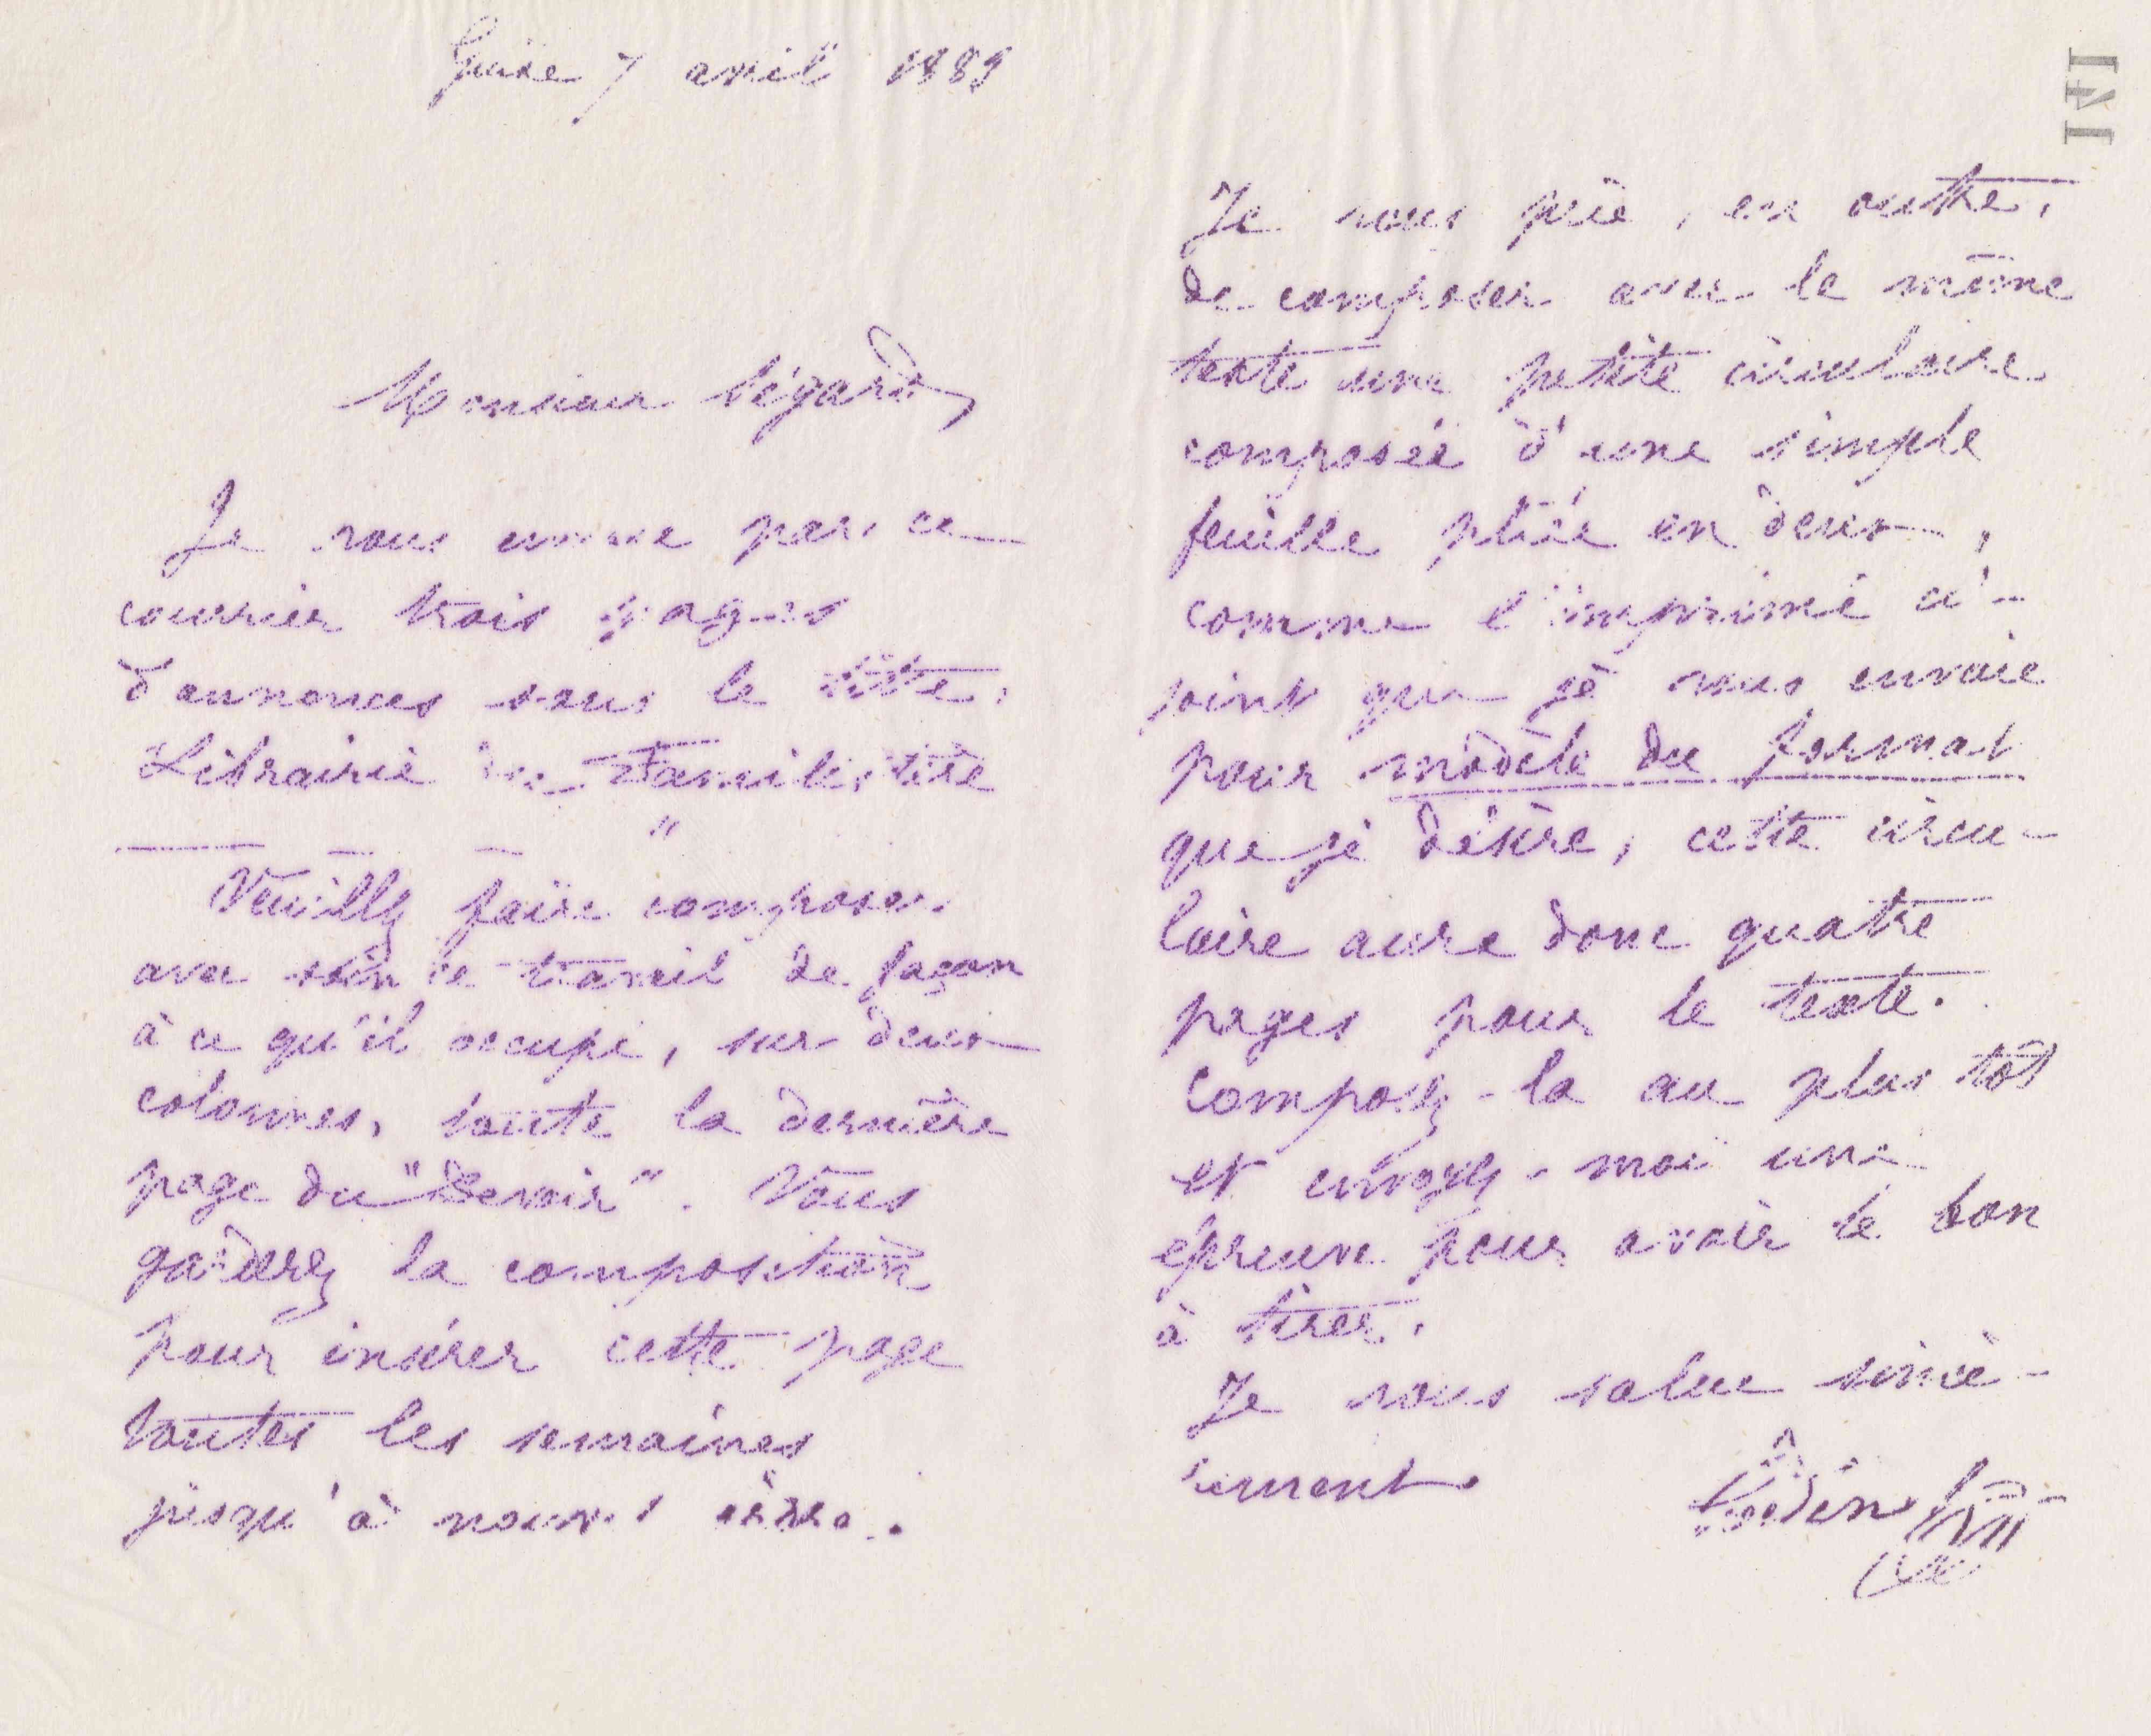 Guise 7 avril 1889
Monsieur Légard,
Je vous envoie par ce
courrier trois pages
d'annonces sous le titre :
Librairie du Familistère
"
Veuillez faire composer
avec soin ce travail de façon
à ce qu'il occupe, sur deux
colonnes, toute la dernière
page du "Devoir". Vous
garderez la composition
pour insérer cette page
toutes les semaines
jusqu'à nouvel ordre.
141
Je vous prie, en outre,
de composer avec le même
texte une petite circulaire
composée d'une simple
feuille pliée en deux,
comme l'imprimé ci-
joint que je vous envoie
pour modèle du format
que je désire, cette circu-
laire aura donc quatre
pages pour le texte.
Composez-la au plus tôt
et envoyez-moi une
épreuve pour avoir le bon
à tirer.
Je vous salue sincè-
rement.
Godin